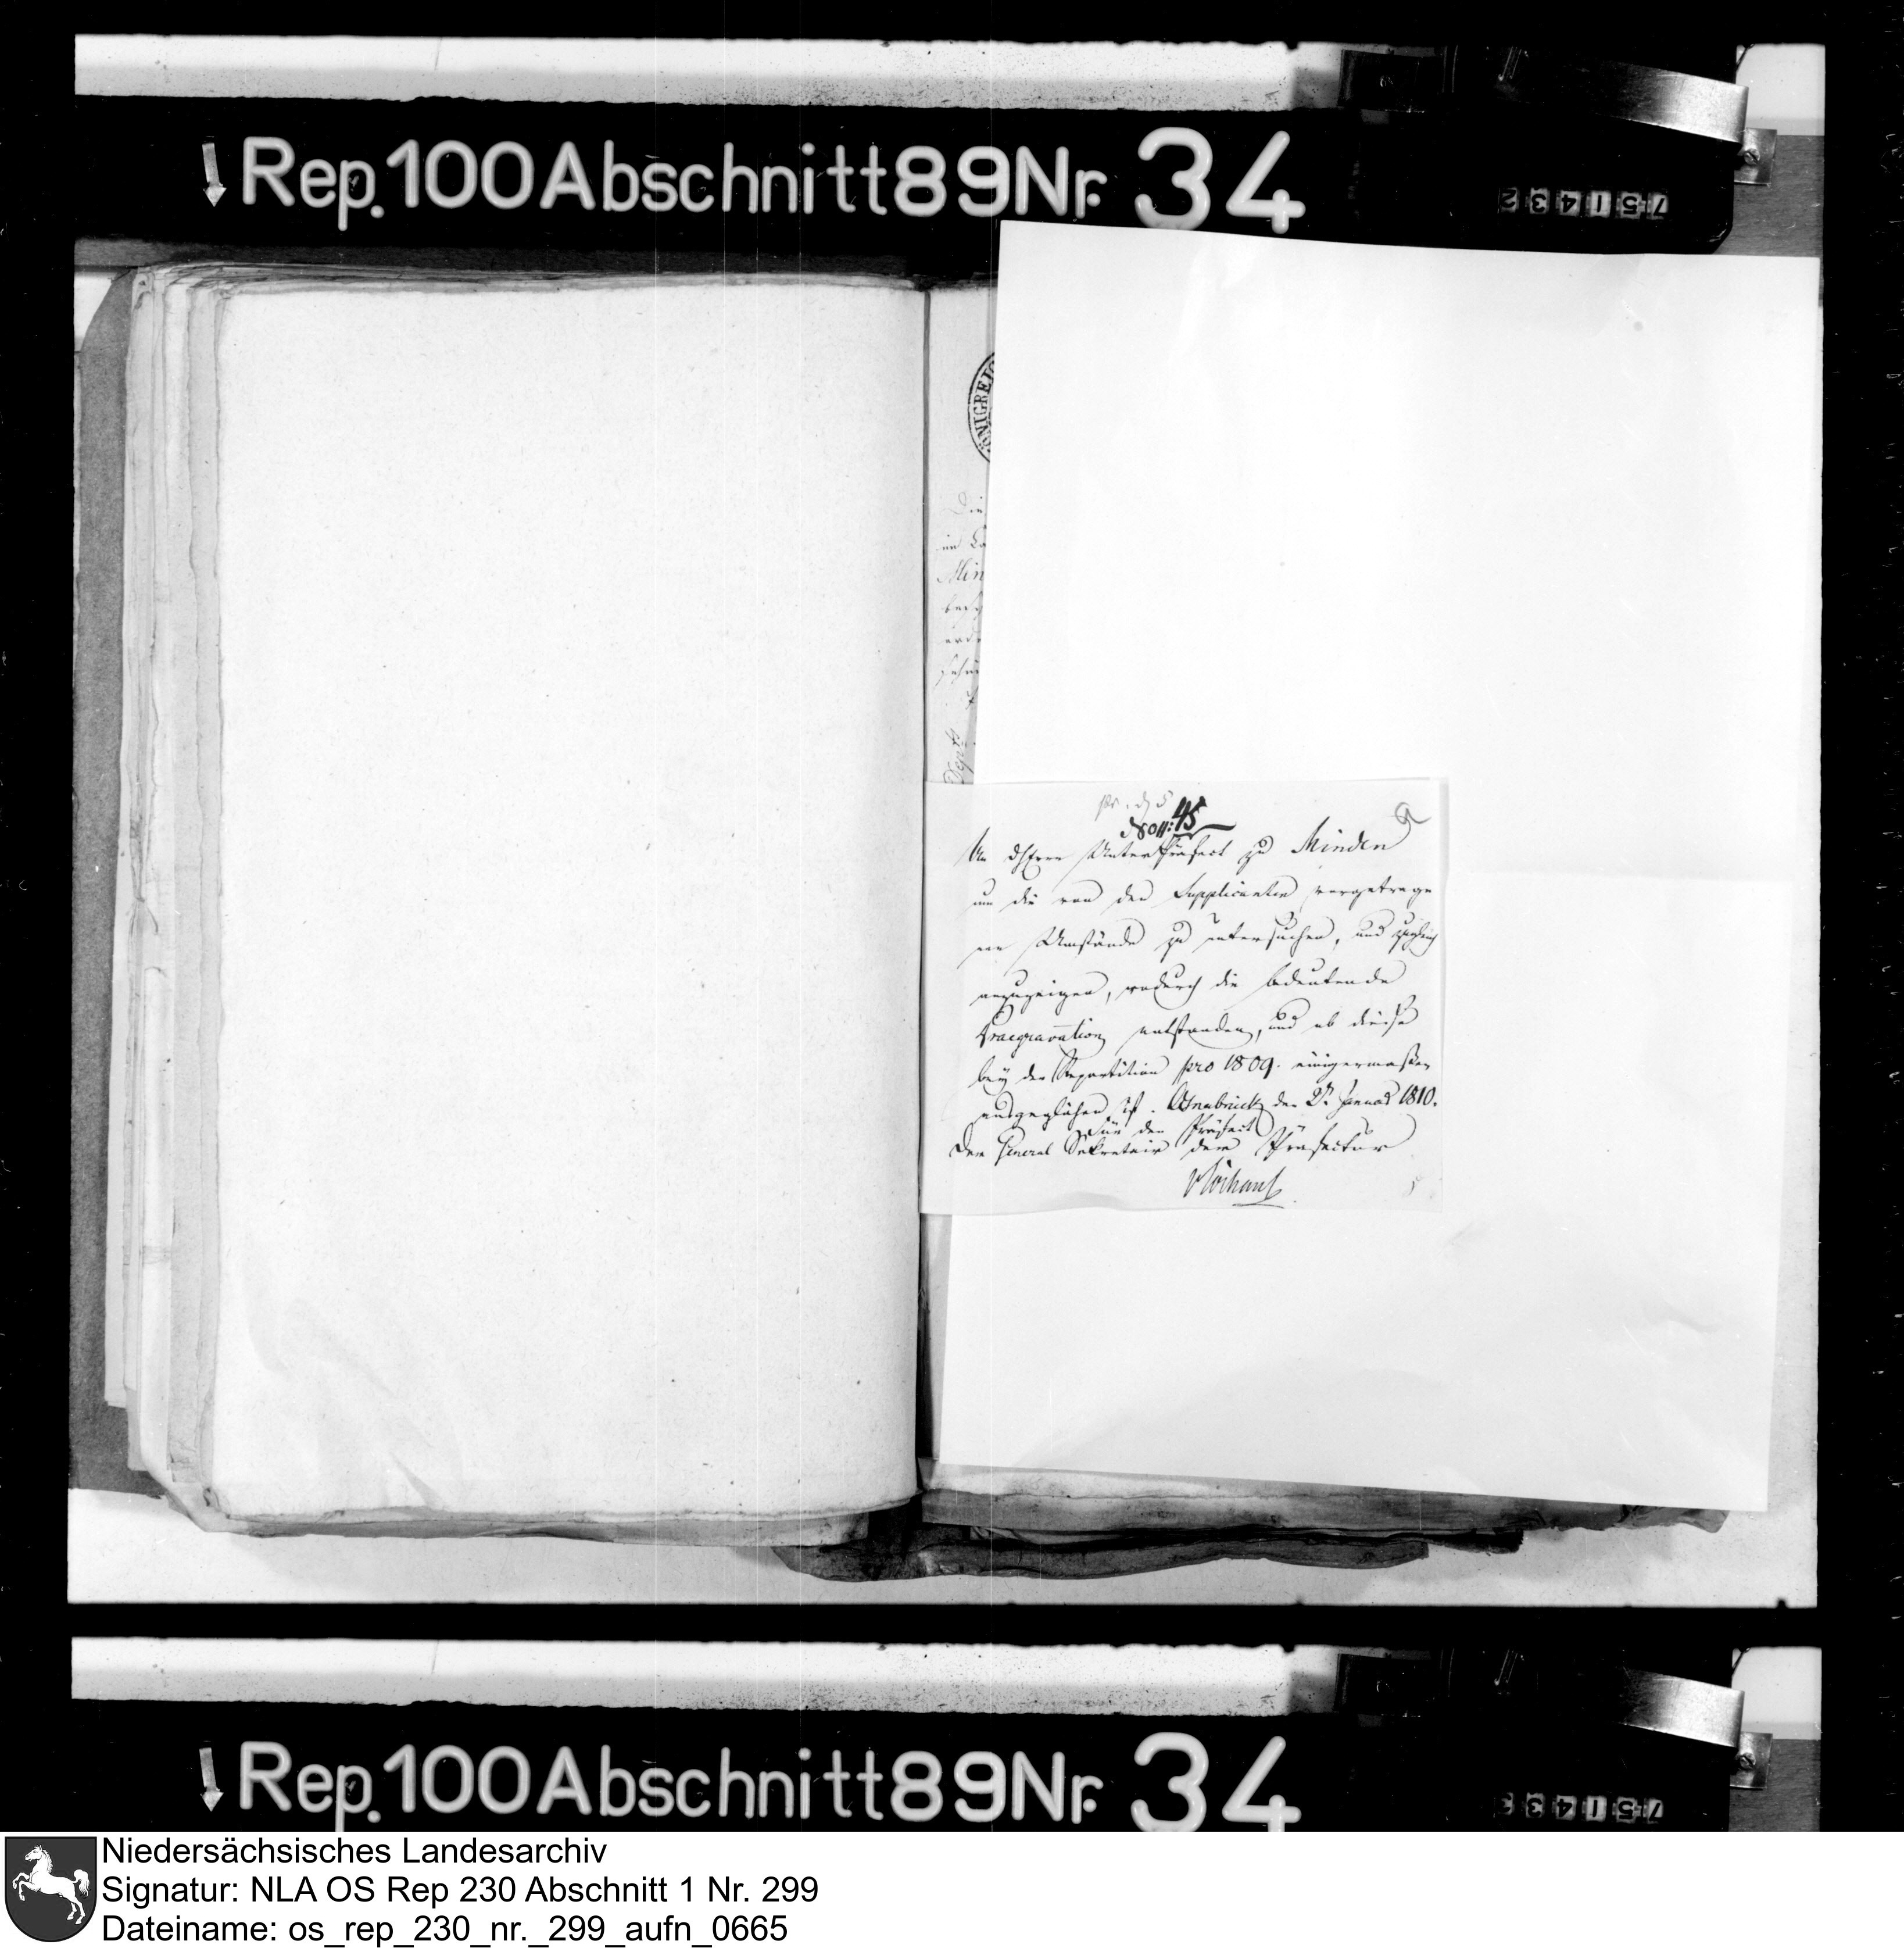 Rep. 100 Abschnitt 89 Nr. 34
751432
ÖNIGREIC
Min
Sept
pr. d 5
45
9
An Herrn UnterPräfect zu Minden
um die von den Supplicanten vorgetrage
nen Umstände zu untersuchen, und zugleich
anzuzeigen, wodurch die bedeutende
Praegravation entstanden, und ob dieselbe
bey der Repartition pro 1809. einigermaßen
ausgeglichen ist. Osnabrück den 2t. Januar 1810.
Für den Präfect
Der General Sekretair der Präfectur
Rep. 100 Abschnitt 89 Nr. 34
751433
Niedersächsisches Landesarchiv
Signatur: NLA OS Rep 230 Abschnitt 1 Nr. 299
Dateiname: os_rep_230_nr._299_aufn_0665